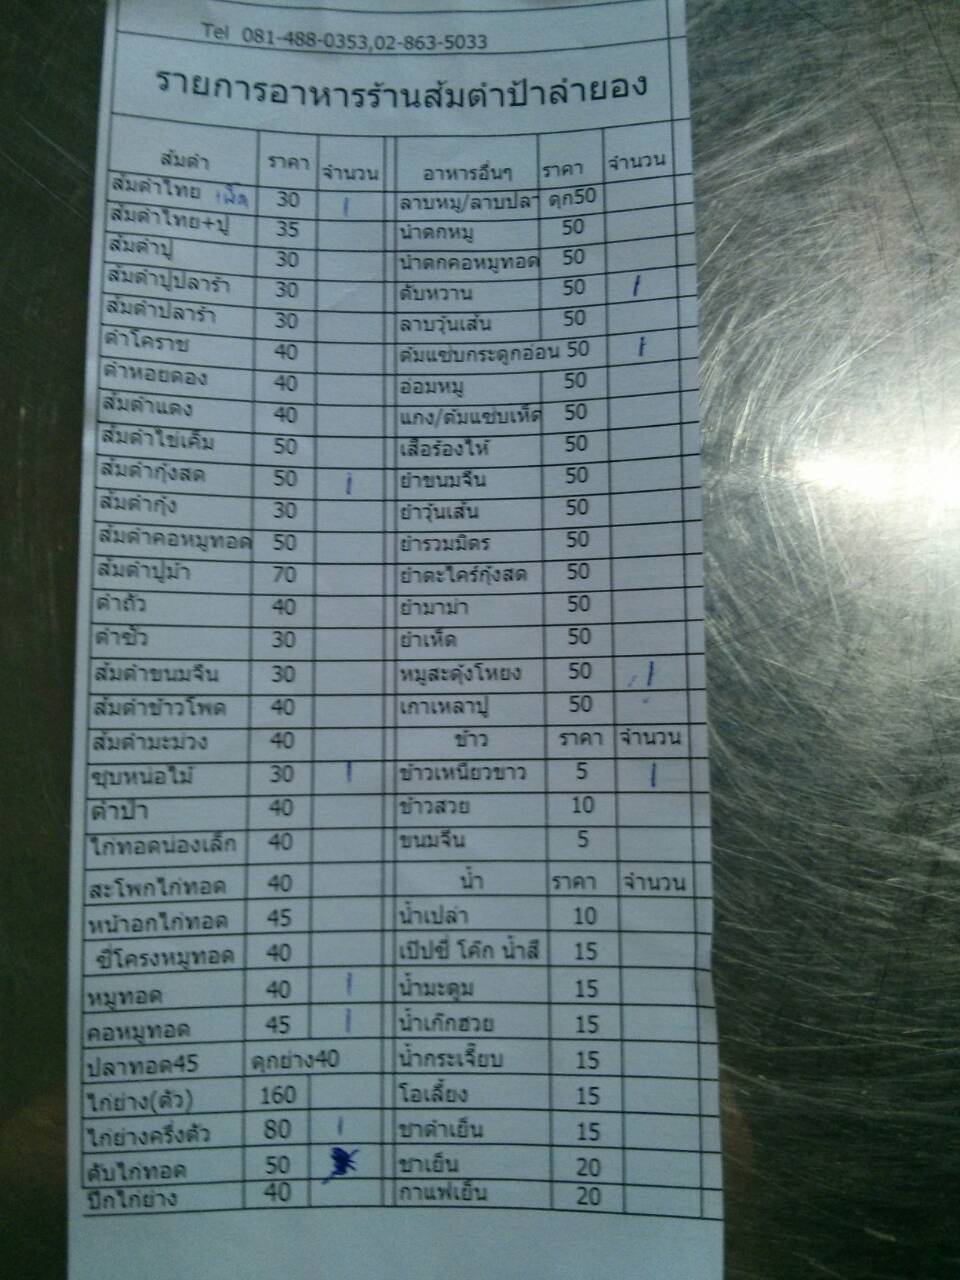 Tel 081-488-0353,02-863-5033
รายการอาหารร้านส้มตำป้าลำยอง
ส้มตำ ราคา จำนวน อาหารอื่นๆ ราคา จำนวน
ส้มตำไทย เผ็ด 30 1 ลาบหมู/ลาบปลา ดุก50
ส้มตำไทย+ปู 35 น้ำตกหมู 50
ส้มตำปู 30 น้ำตกคอหมูทอด 50
ส้มตำปูปลาร้า 30 ตับหวาน 50 1
ส้มตำปลาร้า 30 ลาบวุ้นเส้น 50
ตำโคราช 40 ต้มแซ่บกระดูกอ่อน 50 1
ตำหอยดอง 40 อ่อมหมู 50
ส้มตำแตง 40 แกง/ต้มแซ่บเห็ด 50
ส้มตำไข่เค็ม 50 เสือร้องไห้ 50
ส้มตำกุ้งสด 50 1 ยำขนมจีน 50
ส้มตำกุ้ง 30 ยำวุ้นเส้น 50
ส้มตำคอหมูทอด 50 ยำรวมมิตร 50
ส้มตำปูม้า 70 ยำตะใคร้กุ้งสด 50
ตำถั่ว 40 ยำมาม่า 50
ตำซั่ว 30 ยำเห็ด 50
ส้มตำขนมจีน 30 หมูสะดุ้งโหยง 50 1
ส้มตำข้าวโพด 40 เกาเหลาปู 50
ส้มตำมะม่วง 40 ข้าว ราคา จำนวน
ซุบหน่อไม้ 30 1 ข้าวเหนียวขาว 5 1
ตำป่า 40 ข้าวสวย 10
ไก่ทอดน่องเล็ก 40 ขนมจีน 5
สะโพกไก่ทอด 40 น้ำ ราคา จำนวน
หน้าอกไก่ทอด 45 น้ำเปล่า 10
ซี่โครงหมูทอด 40 เป๊ปซี่ โค๊ก น้ำสี 15
หมูทอด 40 1 น้ำมะตูม 15
คอหมูทอด 45 1 น้ำเก๊กฮวย 15
ปลาทอด45 ดุกย่าง40 น้ำกระเจี๊ยบ 15
ไก่ย่าง(ตัว) 160 โอเลี้ยง 15
ไก่ย่างครึ่งตัว 80 1 ชาดำเย็น 15
ตับไก่ทอด 50 ชาเย็น 20
ปีกไก่ย่าง 40 กาแฟเย็น 20